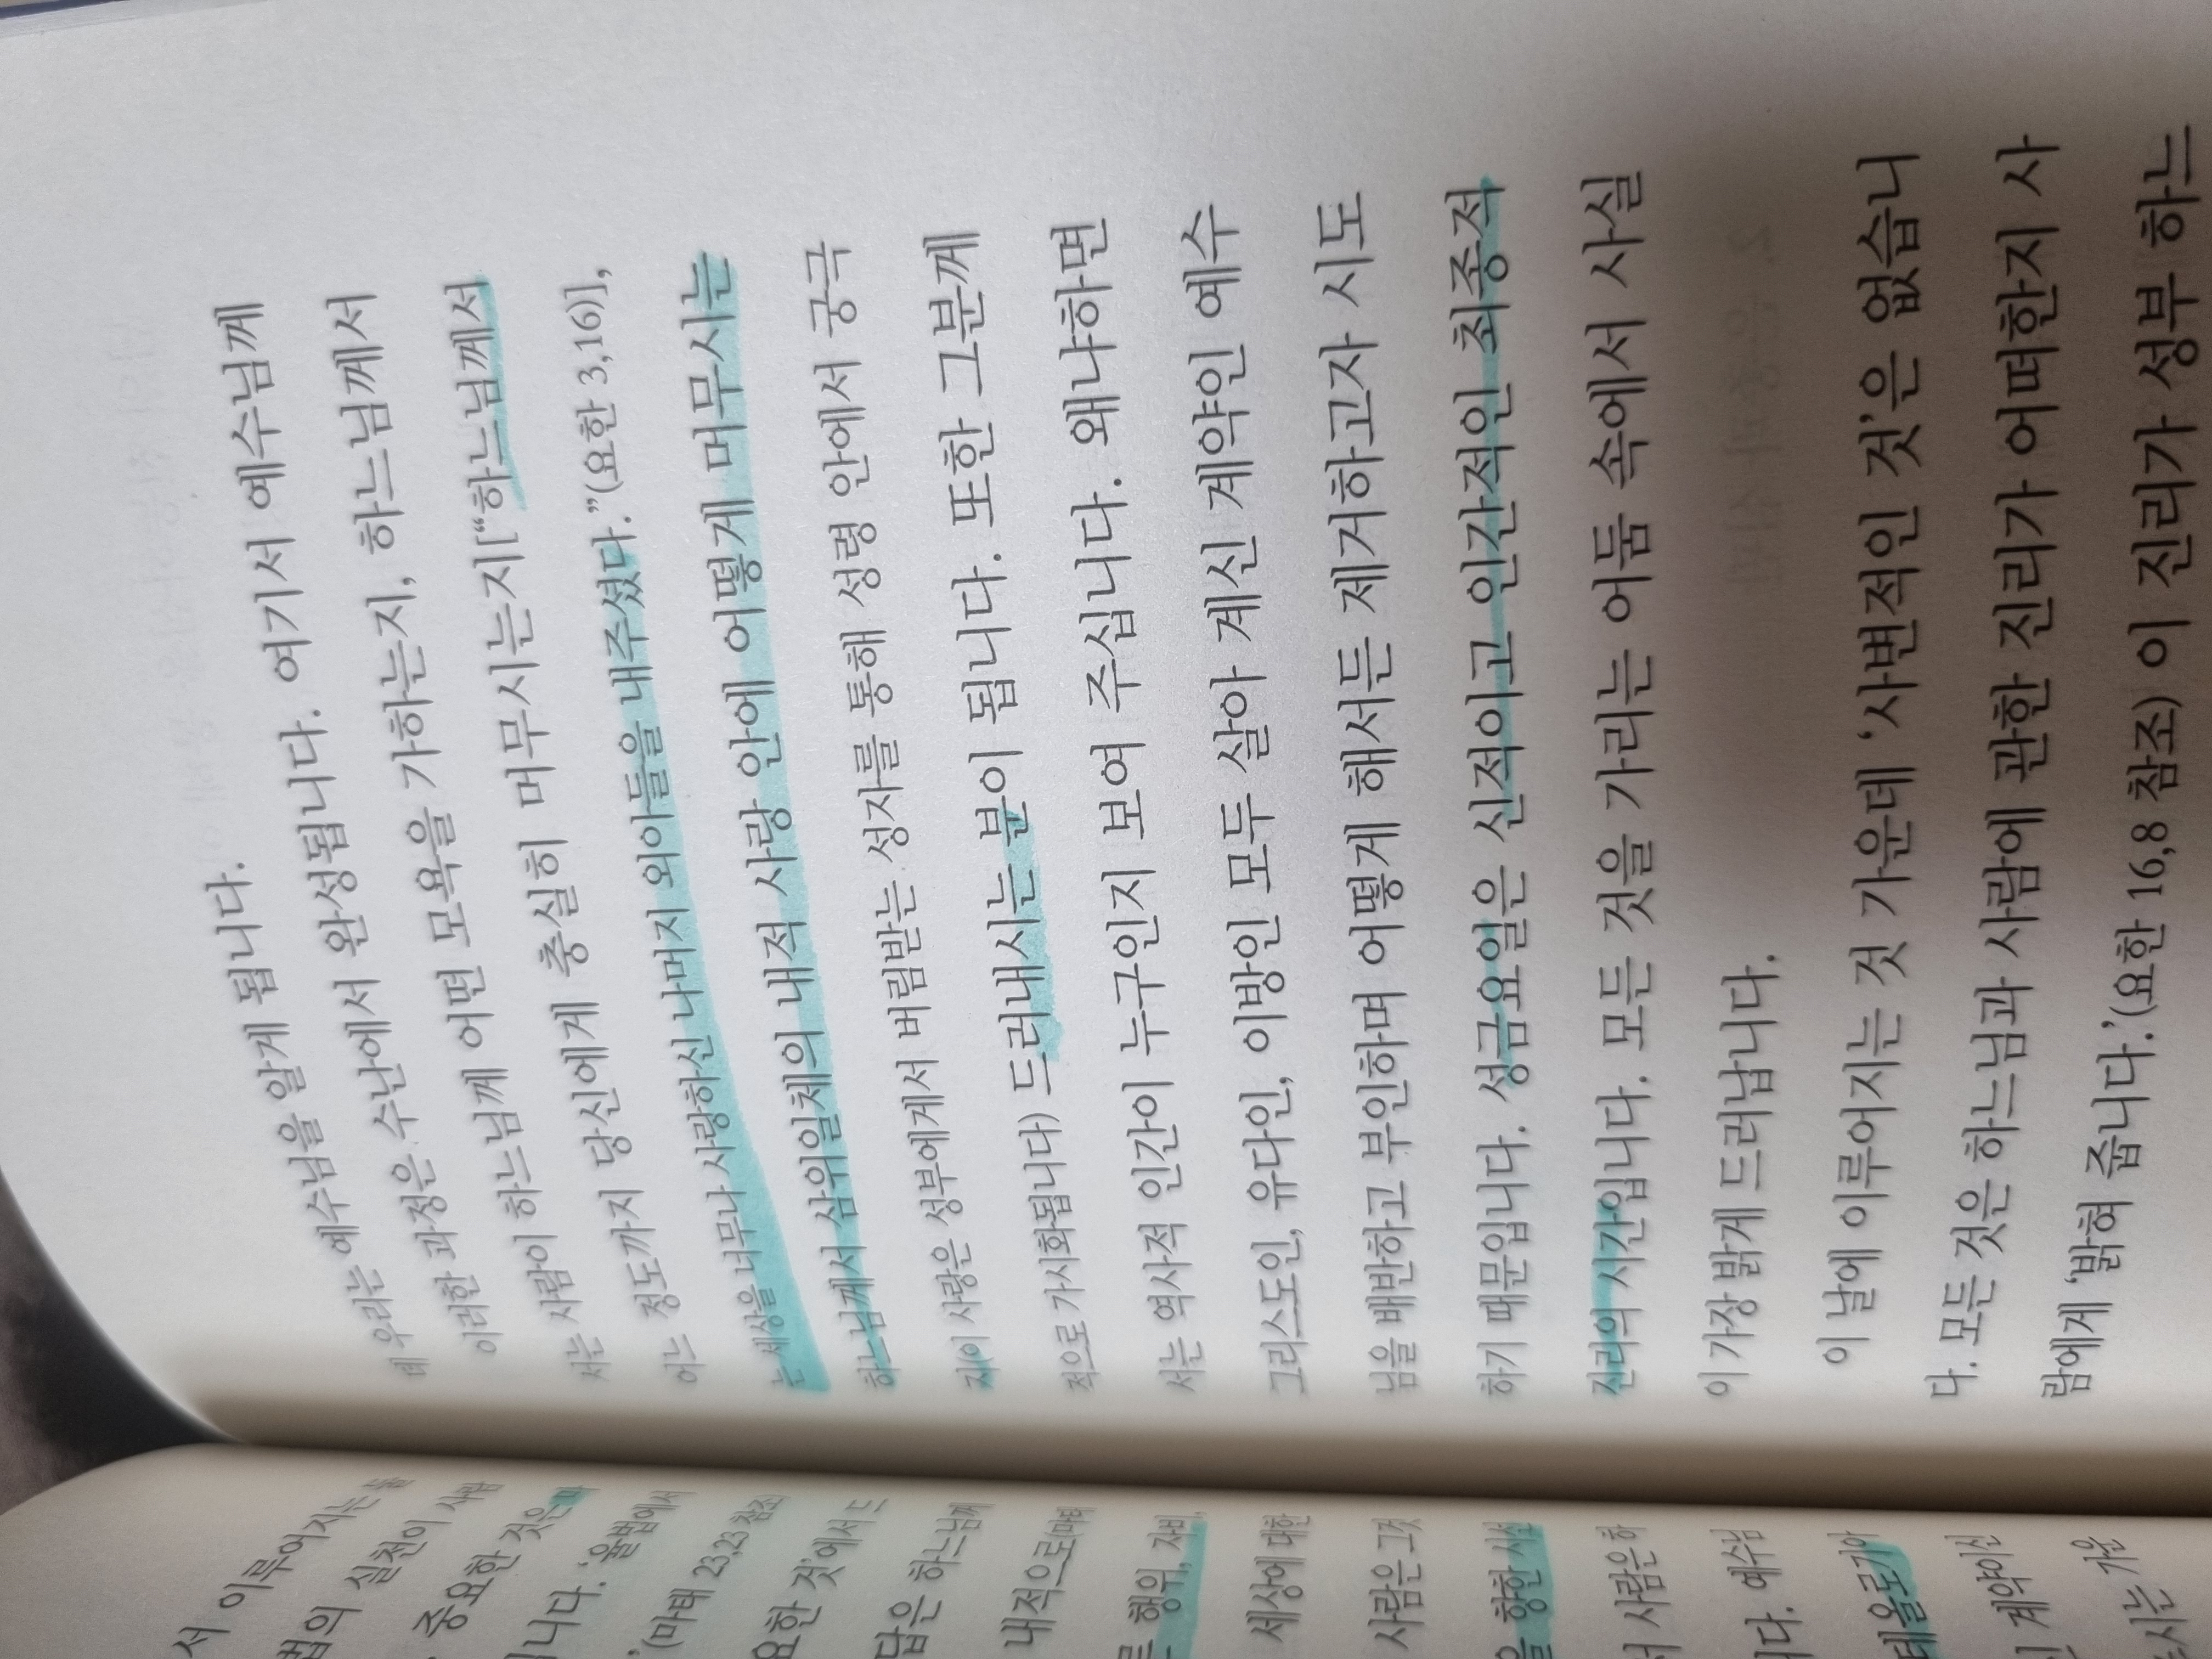 서 이루어지는
법의 실천이 사람
중요한 것은 마
니다. '율법에서
'(마태 23,23 참조)
요한 것'에서 드
답은 하느님께
내적으로(마태
행위, 자비,
세상에 대한
사람은 그것
을 향한 시선
서 사람은 하
니다. 예수님
테올로기아
신 계약이신
으시는 가운
때 우리는 예수님을 알게 됩니다.
이러한 과정은 수난에서 완성됩니다. 여기서 예수님께
서는 사람이 하느님께 어떤 모욕을 가하는지, 하느님께서
어느 정도까지 당신에게 충실히 머무시는지[“하느님께서
는 세상을 너무나 사랑하신 나머지 외아들을 내주셨다.”(요한 3,16)],
하느님께서 삼위일체의 내적 사랑 안에 어떻게 머무시는
지(이 사랑은 성부에게서 버림받는 성자를 통해 성령 안에서 궁극
적으로 가시화됩니다) 드러내시는 분이 됩니다. 또한 그분께
서는 역사적 인간이 누구인지 보여 주십니다. 왜냐하면
그리스도인, 유다인, 이방인 모두 살아 계신 계약인 예수
님을 배반하고 부인하며 어떻게 해서든 제거하고자 시도
하기 때문입니다. 성금요일은 신적이고 인간적인 최종적
진리의 시간입니다. 모든 것을 가리는 어둠 속에서 사실
이 가장 밝게 드러납니다.
이 날에 이루어지는 것 가운데 ‘사변적인 것’은 없습니
다. 모든 것은 하느님과 사람에 관한 진리가 어떠한지 사
람에게 ‘밝혀 줍니다.’(요한 16,8 참조) 이 진리가 성부 하느